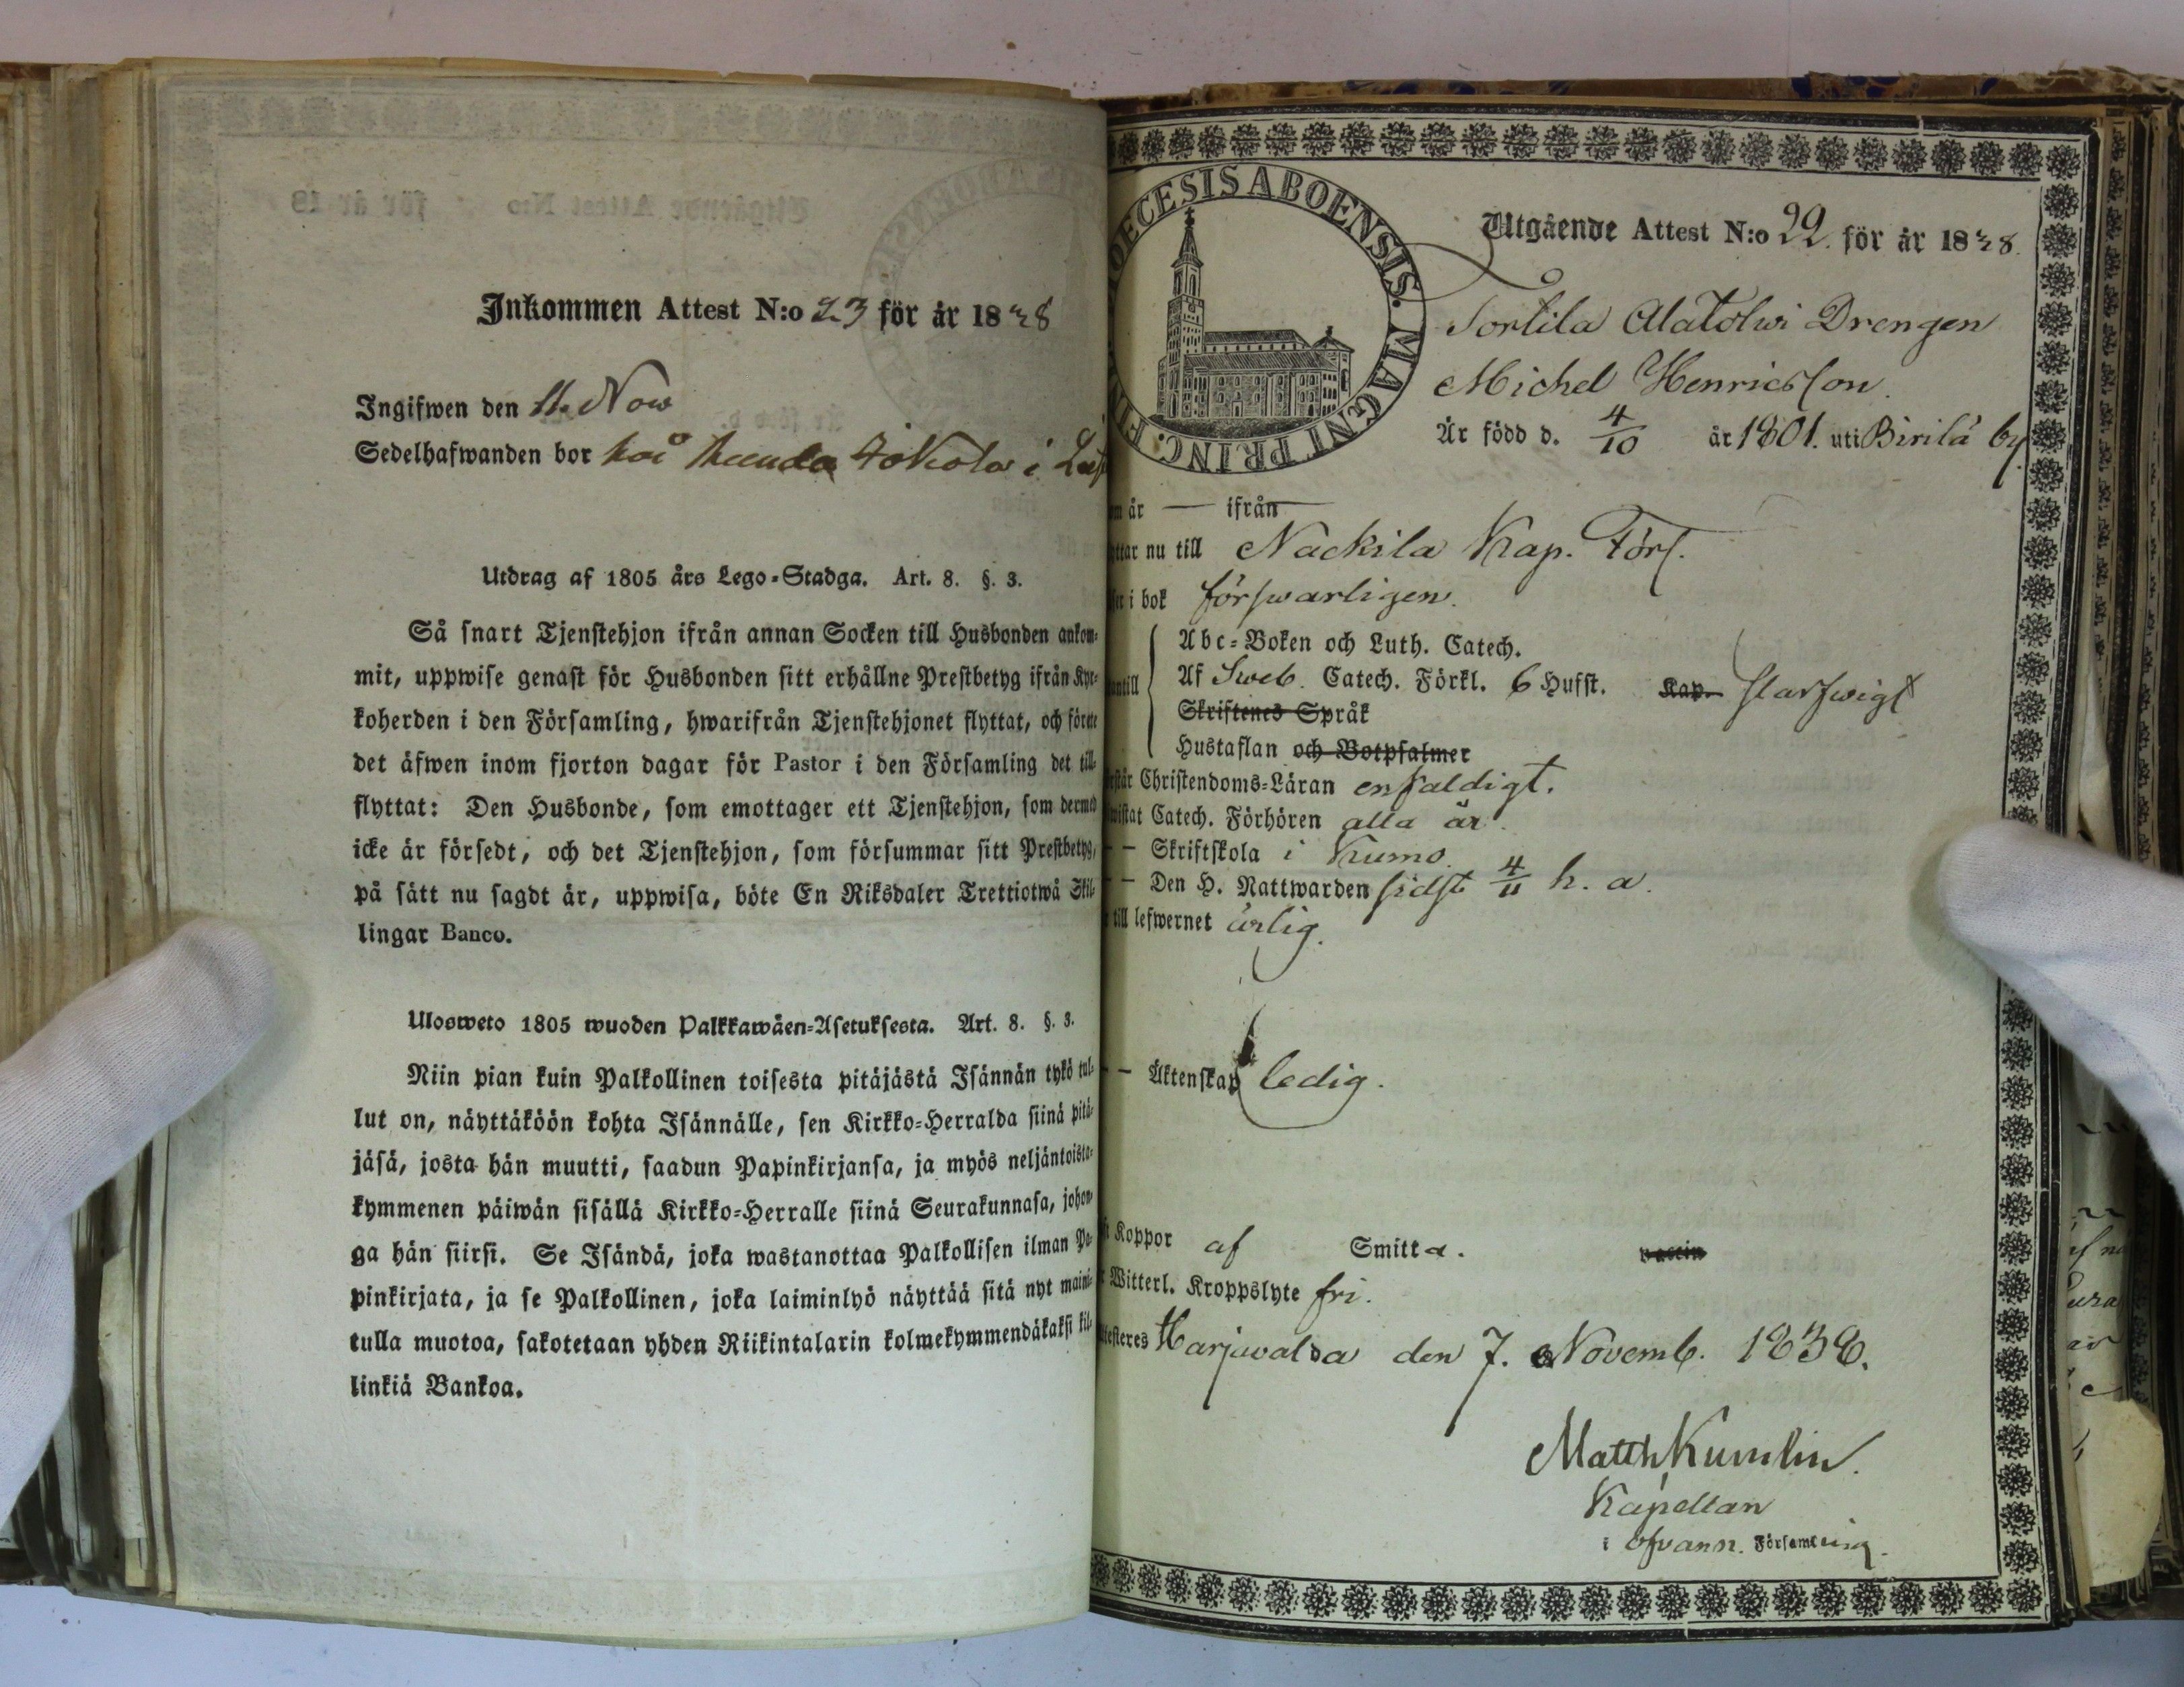 Inkommen Attest N:o 23 för år 1838
Ingifwen den 11. Nov
Sedelhafwanden bor hos
Utdrag af 1805 års Lego-Stadga. Art. 8. §. 3.
Så snart Tjenstehjon ifrån annan Socken till Husbonden ankom-
mit, uppwise genast för Husbonden sitt erhållne Prestbetyg ifrån Kyr-
koherden i den Församling, hwarifrån Tjenstehjonet flyttat, och förete
det äfwen inom fjorton dagar för Pastor i den Församling det till-
flyttat: Den Husbonde, som emottager ett Tjenstehjon, som dermed
icke är försedt, och det Tjenstehjon, som försummar sitt Prestbetyg,
på sätt nu sagdt är, uppwisa, böte En Riksdaler Trettiotwå Skil-
lingar Banco.
Ulosweto 1805 wuoden Palkkawäen-Asetuksesta. Art. 8. §. 3.
Niin pian kuin Palkollinen toisesta pitäjästä Isännän tykö tul-
lut on, näyttäköön kohta Isännälle, sen Kirkko-Herralda siinä pitä-
jäsä, josta hän muutti, saadun Papinkirjansa, ja myös neljäntoista-
kymmenen päiwän sisällä Kirkko-Herralle siinä Seurakunnasa, johon-
ga hän siirsi. Se Isändä, joka wastanottaa Palkollisen ilman Pa-
pinkirjata, ja se Palkollinen, joka laiminlyö näyttää sitä nyt maini-
tulla muotoa, sakotetaan yhden Riikintalarin kolmekymmendäkaksi kil-
linkiä Bankoa.
DIOECESIS ABOENSIS. MAGNI PRINC.
Utgående Attest N:o 22. för år 1838.
Sortila Alatolwi Drengen
Michel Henricsson.
Är född d. 4/10 år 1801. uti Birilä by
år — ifrån
nu till Nackila Kap. Förs.
i bok förswarligen.
Abc-Boken och Luth. Catech.
Af Sweb. Catech. Förkl. 6 Hufst. Kap. Slarfwigt
Skriftenes Språk
Hustaflan och Botpsalmer
Christendoms-Läran enfaldigt.
Catech. Förhören alla år.
— Skriftskola i Kumo.
— Den H. Nattwarden sidst 4/11 h. a.
till lefwernet ärlig.
— Äktenskap ledig.
Koppor af Smitta. vaccin
Witterl. Kroppslyte fri.
Harjawalda den 7. Novemb. 1838.
Matth Kumlin.
Kapellan
i ofvann. Församling.